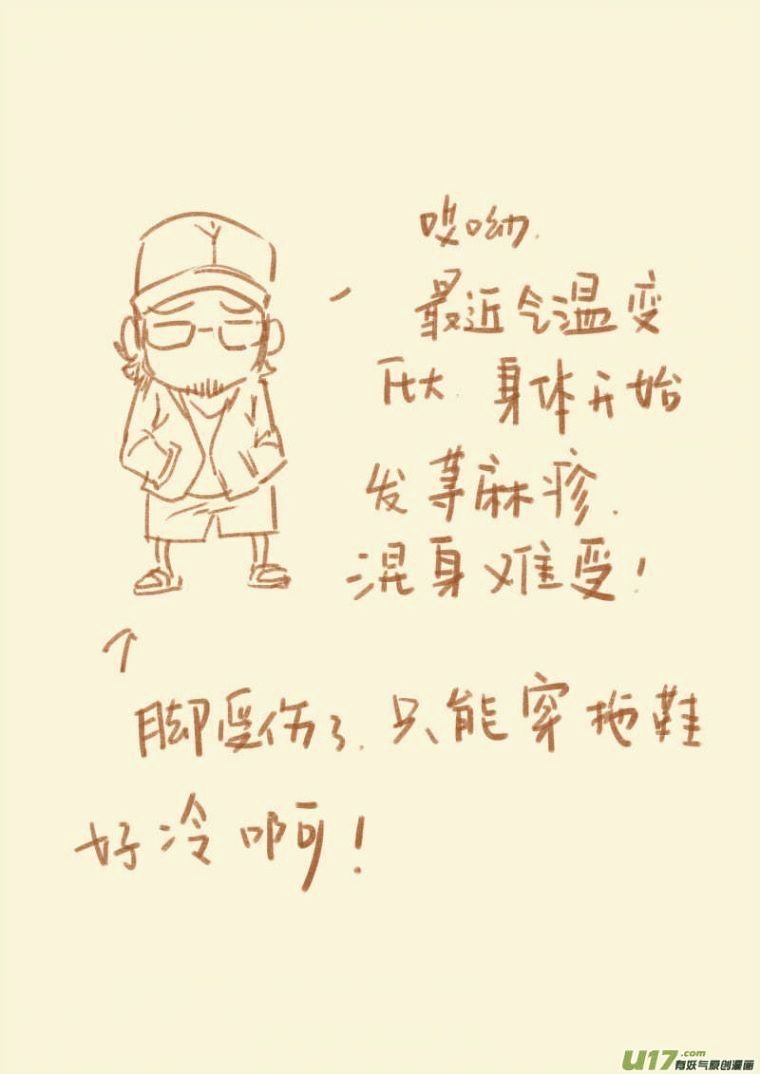 哎呦.
最近气温变
压大.身体开始
发荨麻疹.
混身难受!
脚受伤了.只能穿拖鞋
好冷啊!
U17.com
有妖气原创漫画